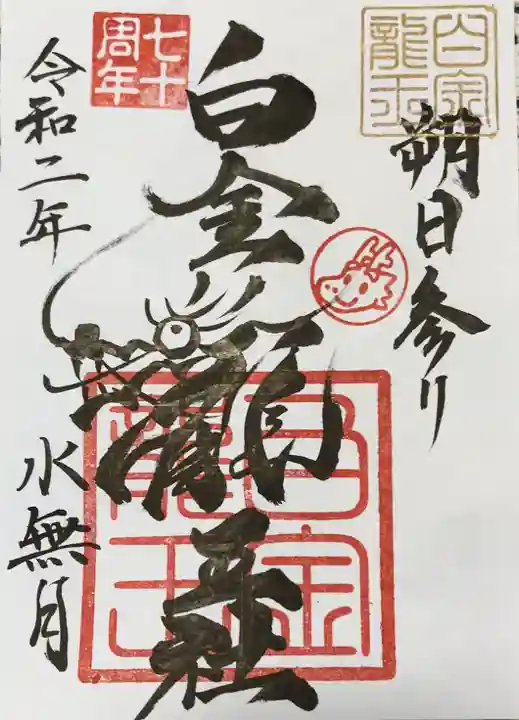 白金龍王
朔日参り
白金龍王社
七十
周年
令和二年
水無月
白金
龍王